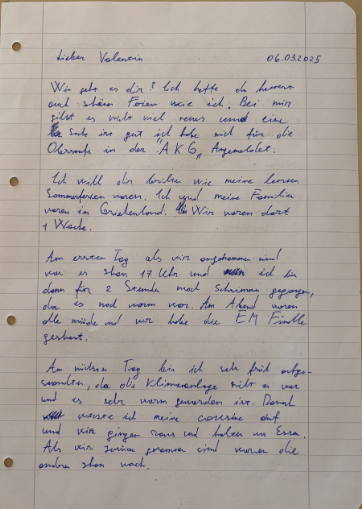 Lieber Valentin 06.09.2025
Wie geht es dir? Ich hoffe du
auch schöne Ferien wie ich. Bei mir
gibt es nicht viel neues und eine
Sache ist gut ich habe mich für die
Oberstufe in der "AKG" Angemeldet.
Ich will dir wie meine
Sommerferien waren. Ich und meine Familie
waren in Griechenland. Wir waren dort
1 Woche.
Am ersten Tag als wir angekommen sind
war es schon 17 Uhr und ich bin
dann für 2 Stunde noch Schwimmen gegangen,
da es noch warm war. Am Abend waren
alle müde und wir habe die EM Finale
geschaut.
Am nächsten Tag bin ich sehr früh aufge-
standen, da die Klimaanlage nicht an war
und es sehr warm geworden ist. Danach
ich meine auf
und wir gingen raus und haben Essen.
Als wir zurück gekommen sind waren die
andren schon wach.